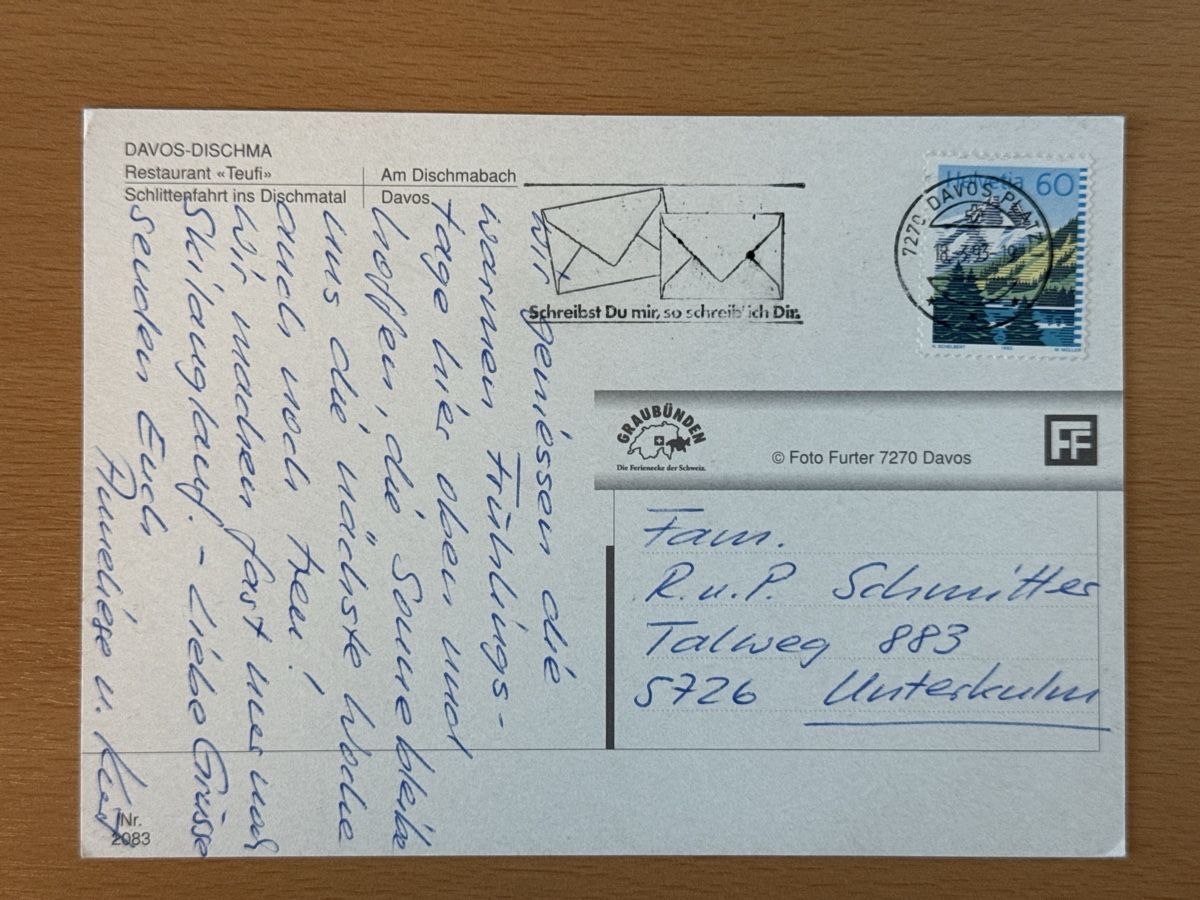 DAVOS-DISCHMA
Restaurant «Teufi»
Schlittenfahrt ins Dischmatal
Am Dischmabach
Davos
Schreibst Du mir, so schreib' ich Dir.
Helvetia 60
7270 DAVOS PLATZ
18.-3.93-
H. SCHELBERT 1993 M. MÜLLER
GRAUBÜNDEN
Die Ferienecke der Schweiz.
© Foto Furter 7270 Davos
FF
Wir geniessen die
warmen Frühlings-
tage hier oben und
hoffen, die Sonne bleibe
uns die nächste Woche
auch noch treu!
Wir machen fast nur noch
Skilanglauf. – Liebe Grüsse
senden Euch
Anneliese u. Kurt
Fam.
R. u. P. Schmitter
Talweg 883
5726 Unterkulm
Nr.
2083